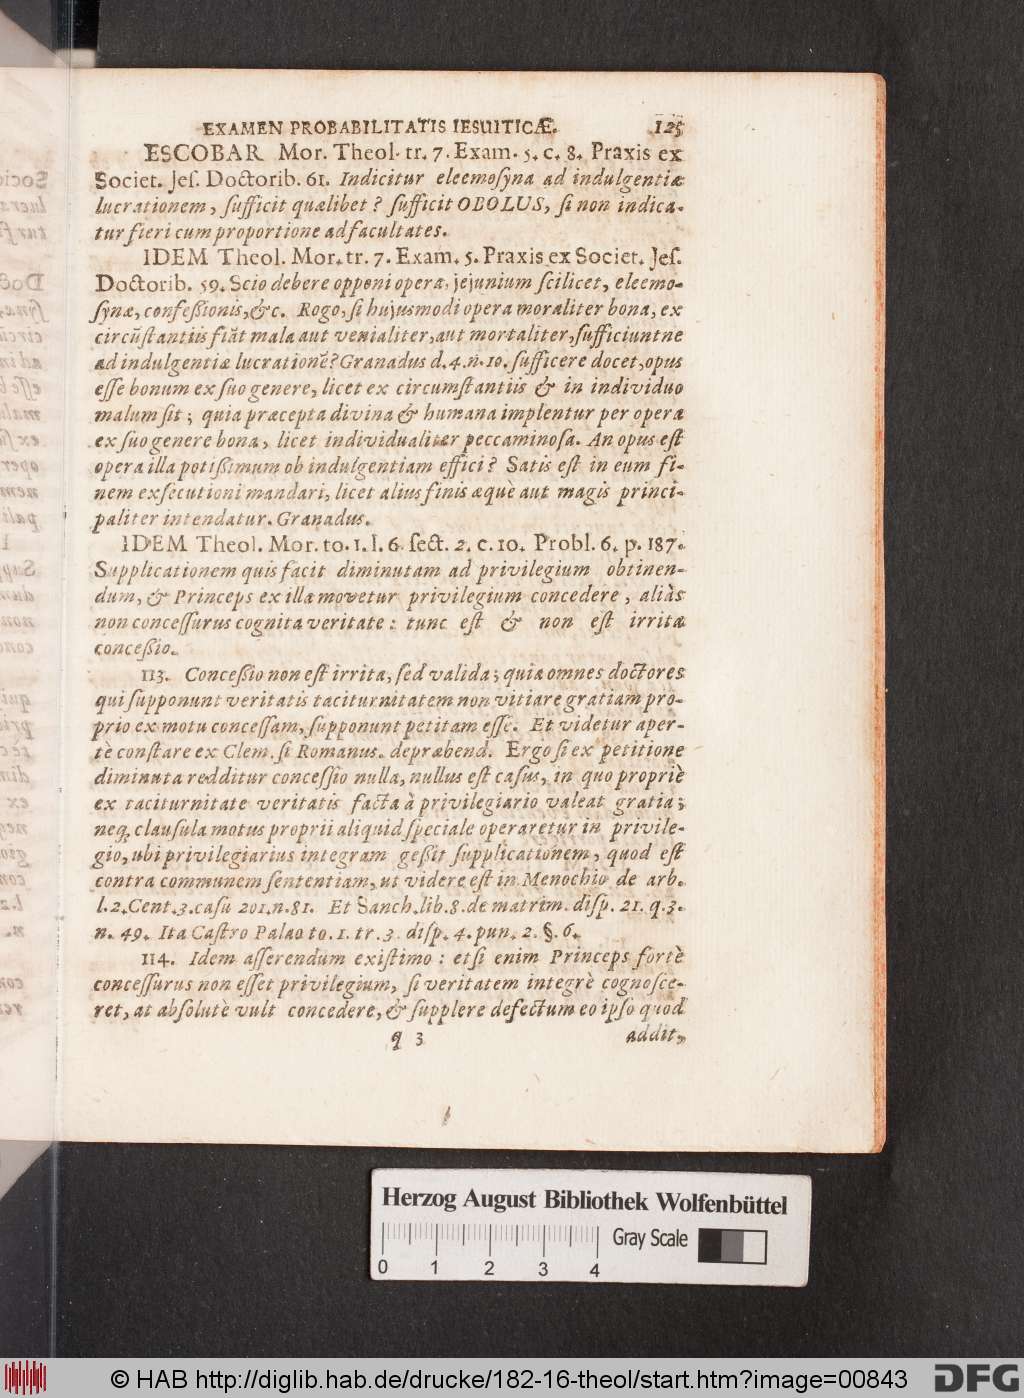 EXAMEN PROBABILITATIS IESUITICÆ. 125
ESCOBAR Mor. Theol. tr. 7. Exam. 5. c. 8. Praxis ex
Societ. Jeſ. Doctorib. 61. Indicitur eleemoſyna ad indulgentiæ
lucrationem, ſufficit quælibet? ſufficit OBOLUS, ſi non indica-
tur fieri cum proportione ad facultates.
IDEM Theol. Mor. tr. 7. Exam. 5. Praxis ex Societ. Jeſ.
Doctorib. 59. Scio debere opponi opera, jejunium ſcilicet, eleemo-
ſynæ, confeßionis, &c. Rogo, ſi hujusmodi opera moraliter bona, ex
circũſtantiis fiãt mala aut venialiter, aut mortaliter, ſufficiuntne
ad indulgentiæ lucrationẽ? Granadus d. 4. n. 10. ſufficere docet, opus
eſſe bonum ex ſuo genere, licet ex circumſtantiis & in individuo
malum ſit; quia præcepta divina & humana implentur per opera
ex ſuo genere bona, licet individualiter peccaminoſa. An opus eſt
opera illa potißimum ob indulgentiam effici? Satis eſt in eum fi-
nem exſecutioni mandari, licet alius finis æquè aut magis princi-
paliter intendatur. Granadus.
IDEM Theol. Mor. to. 1. l. 6. ſect. 2. c. 10. Probl. 6. p. 187.
Supplicationem quis facit diminutam ad privilegium obtinen-
dum, & Princeps ex illa movetur privilegium concedere, aliàs
non conceſſurus cognita veritate: tunc eſt & non eſt irrita
conceßio.
113. Conceßio non eſt irrita, ſed valida; quia omnes doctores
qui ſupponunt veritatis taciturnitatem non vitiare gratiam pro-
prio ex motu conceſſam, ſupponunt petitam eſſe. Et videtur aper-
tè conſtare ex Clem. ſi Romanus. de præbend. Ergo ſi ex petitione
diminuta redditur conceſſio nulla, nullus eſt caſus, in quo propriè
ex taciturnitate veritatis facta à privilegiario valeat gratia;
neq; clauſula motus proprii aliquid ſpeciale operaretur in privile-
gio, ubi privilegiarius integram geßit ſupplicationem, quod eſt
contra communem ſententiam, ut videre eſt in Menochio de arb.
l. 2. Cent. 3. caſu 201. n. 81. Et Sanch. lib. 8. de matrim. diſp. 21. q. 3.
n. 49. Ita Caſtro Palao to. 1. tr. 3. diſp. 4. pun. 2. §. 6.
114. Idem aſſerendum exiſtimo: etſi enim Princeps fortè
conceſſurus non eſſet privilegium, ſi veritatem integrè cognoſce-
ret, at abſolutè vult concedere, & ſupplere defectum eo ipſo quod
q 3 addit,
Herzog August Bibliothek Wolfenbüttel
Gray Scale
0 1 2 3 4
© HAB http://diglib.hab.de/drucke/182-16-theol/start.htm?image=00843
DFG